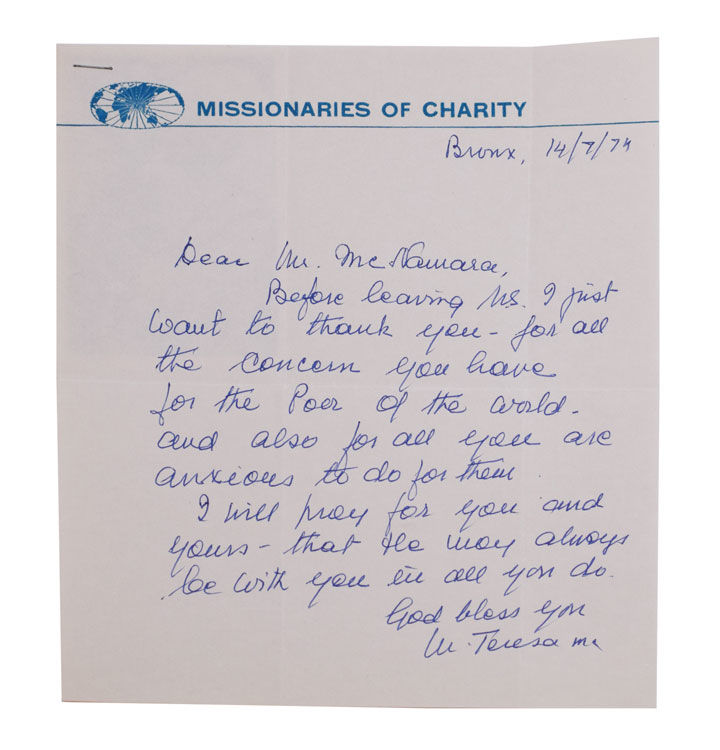 MISSIONARIES OF CHARITY
Bronx, 14/7/74
Dear Mr. McNamara,
Before leaving US. I just
want to thank you - for all
the concern you have
for the Poor of the world -
and also for all you are
anxious to do for them.
I will pray for you and
yours - that He may always
be with you in all you do.
God bless you
M. Teresa mc